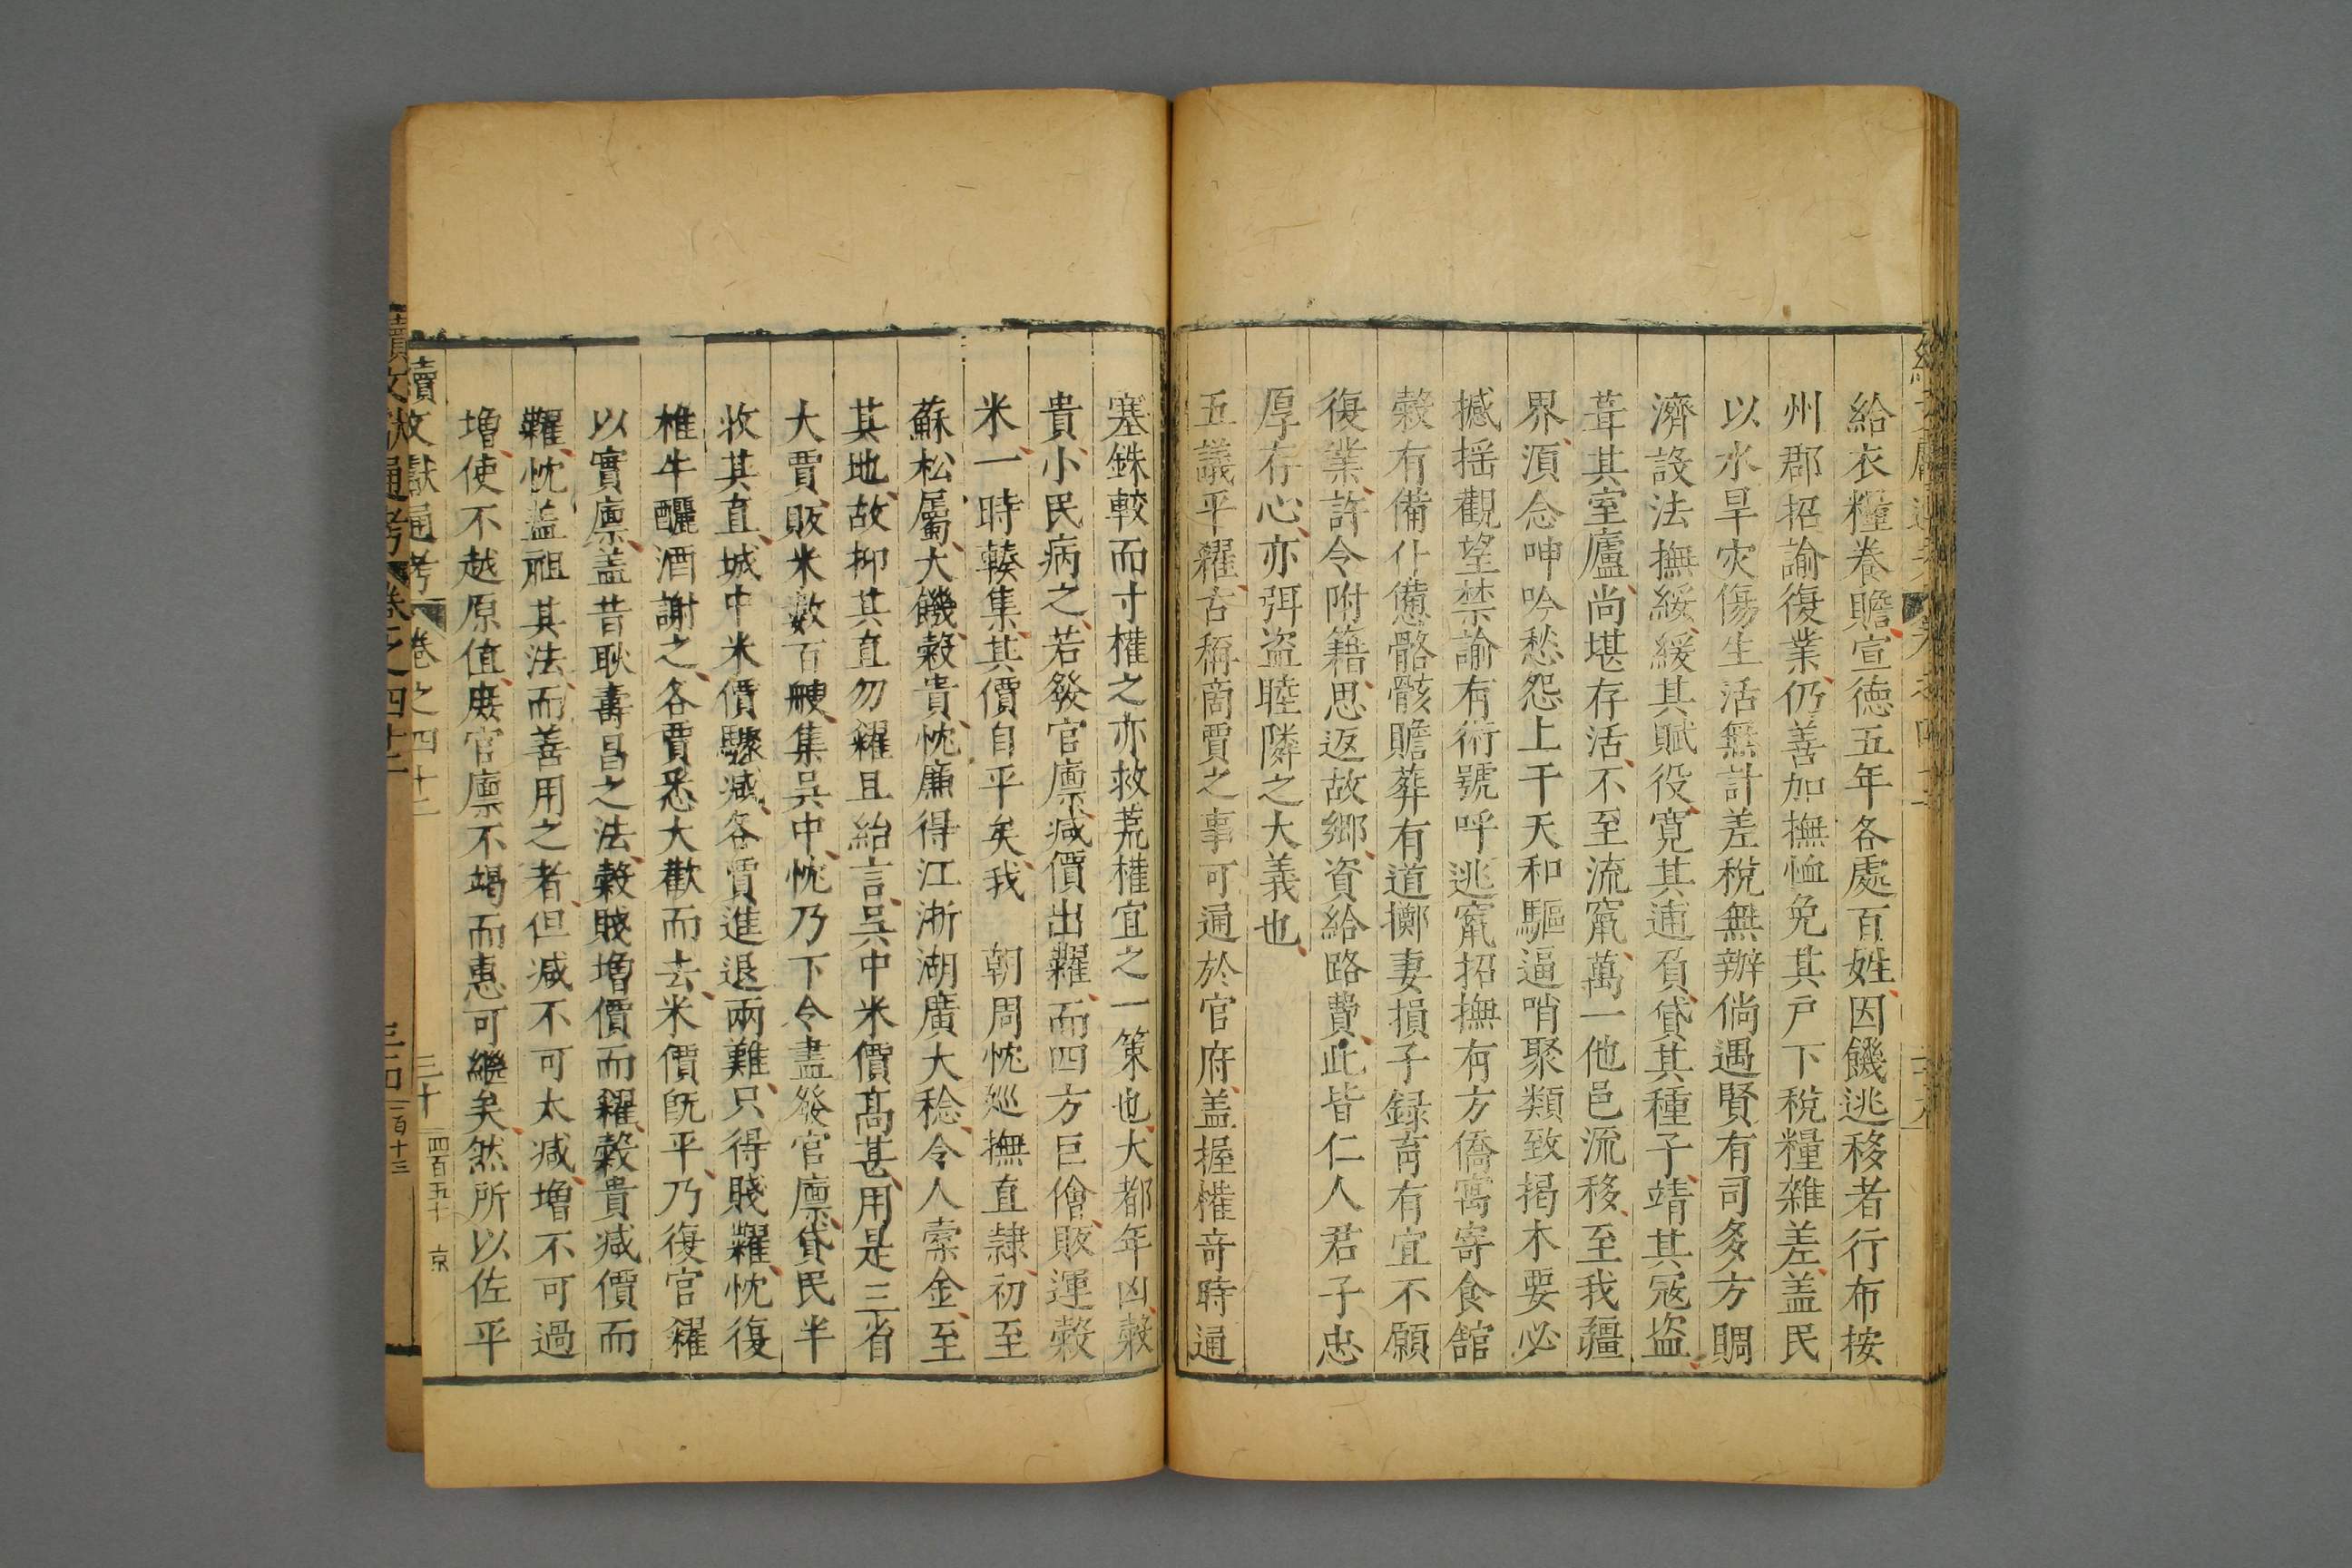 給衣糧養贍宣德五年各處百姓因饑逃移者行布按
州郡招諭復業仍善加撫恤免其戶下稅糧雜差盖民
以水旱灾傷生活無計差稅無辦倘遇賢有司多方賙
濟設法撫綏緩其賦役寬其逋負貸其種子靖其冦盗
葺其室廬尚堪存活不至流竄萬一他邑流移至我疆
界湏念呻吟愁怨上干天和驅逼哨聚類致揭木要必
撼揺觀望禁諭有術號呼逃竄招撫有方僑寓寄食舘
糓有備仆憊骼骸贍葬有道擲妻損子録育有宜不願
復業許令附籍思返故鄉資給路費此皆仁人君子忠
厚存心亦弭盗睦隣之大義也
五議平糴古稱啇賈之事可通於官府盖握權竒時通
塞銖較而寸權之亦救荒權宜之一策也大都年凶糓
貴小民病之若發官廪减價出糶而四方巨儈販運糓
米一時輳集其價自平矣我 朝周忱廵撫直隷初至
蘇松屬大饑糓貴忱廉得江浙湖廣大稔令人槖金至
其地故抑其直勿糴且紿言呉中米價髙甚用是三省
大賈販米數百艘集呉中忱乃下令盡發官廪貸民半
收其直城中米價驟减各賈進退兩難只得賤糶忱復
椎牛釃酒謝之各賈悉大歡而去米價旣平乃復官糴
以實廪盖昔耿壽昌之法糓賤増價而糴糓貴减價而
糶忱盖祖其法而善用之者但减不可太减増不可過
増使不越原值庻官廪不竭而惠可繼矣然所以佐平
續文獻通考 卷之四十二 三十 四百五十 京